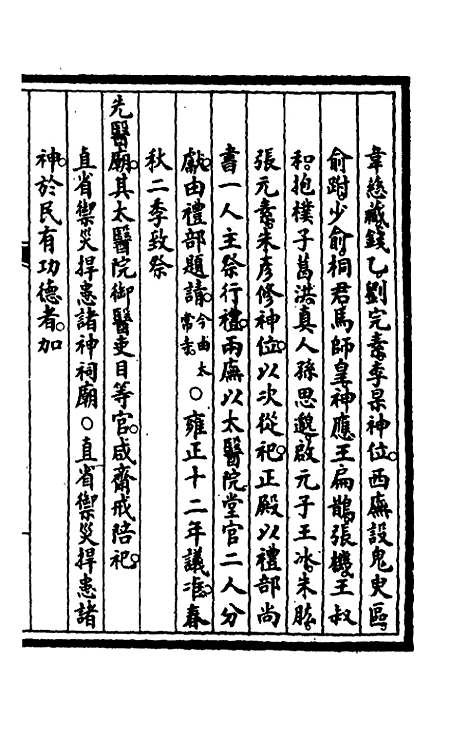 韋慈藏錢乙劉完素李杲神位西廡設鬼臾區
俞跗少俞桐君馬師皇神應王扁鵲張機王叔
和抱樸子葛洪真人孫思邈啟元子王冰朱肱
張元素朱彥修神位以次從祀正殿以禮部尚
書一人主祭行禮兩廡以太醫院堂官二人分
獻由禮部題請今由太常寺○雍正十二年議準春
秋二季致祭
先醫廟其太醫院御醫吏目等官咸齋戒陪祀
直省禦災捍患諸神祠廟○直省禦災捍患諸
神於民有功德者加